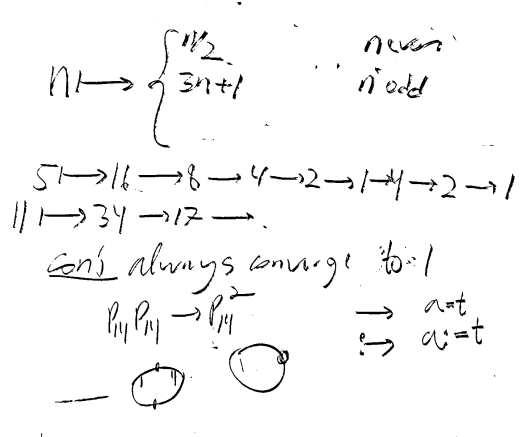 n ↦ { n/2 n even
3n+1 n odd
5 ↦ 16 → 8 → 4 → 2 → 1 → 4 → 2 → 1
11 ↦ 34 → 17 → .
conj always converge to 1
P₁₄ P₁₄ → P₁₄² → a=t
a:=t